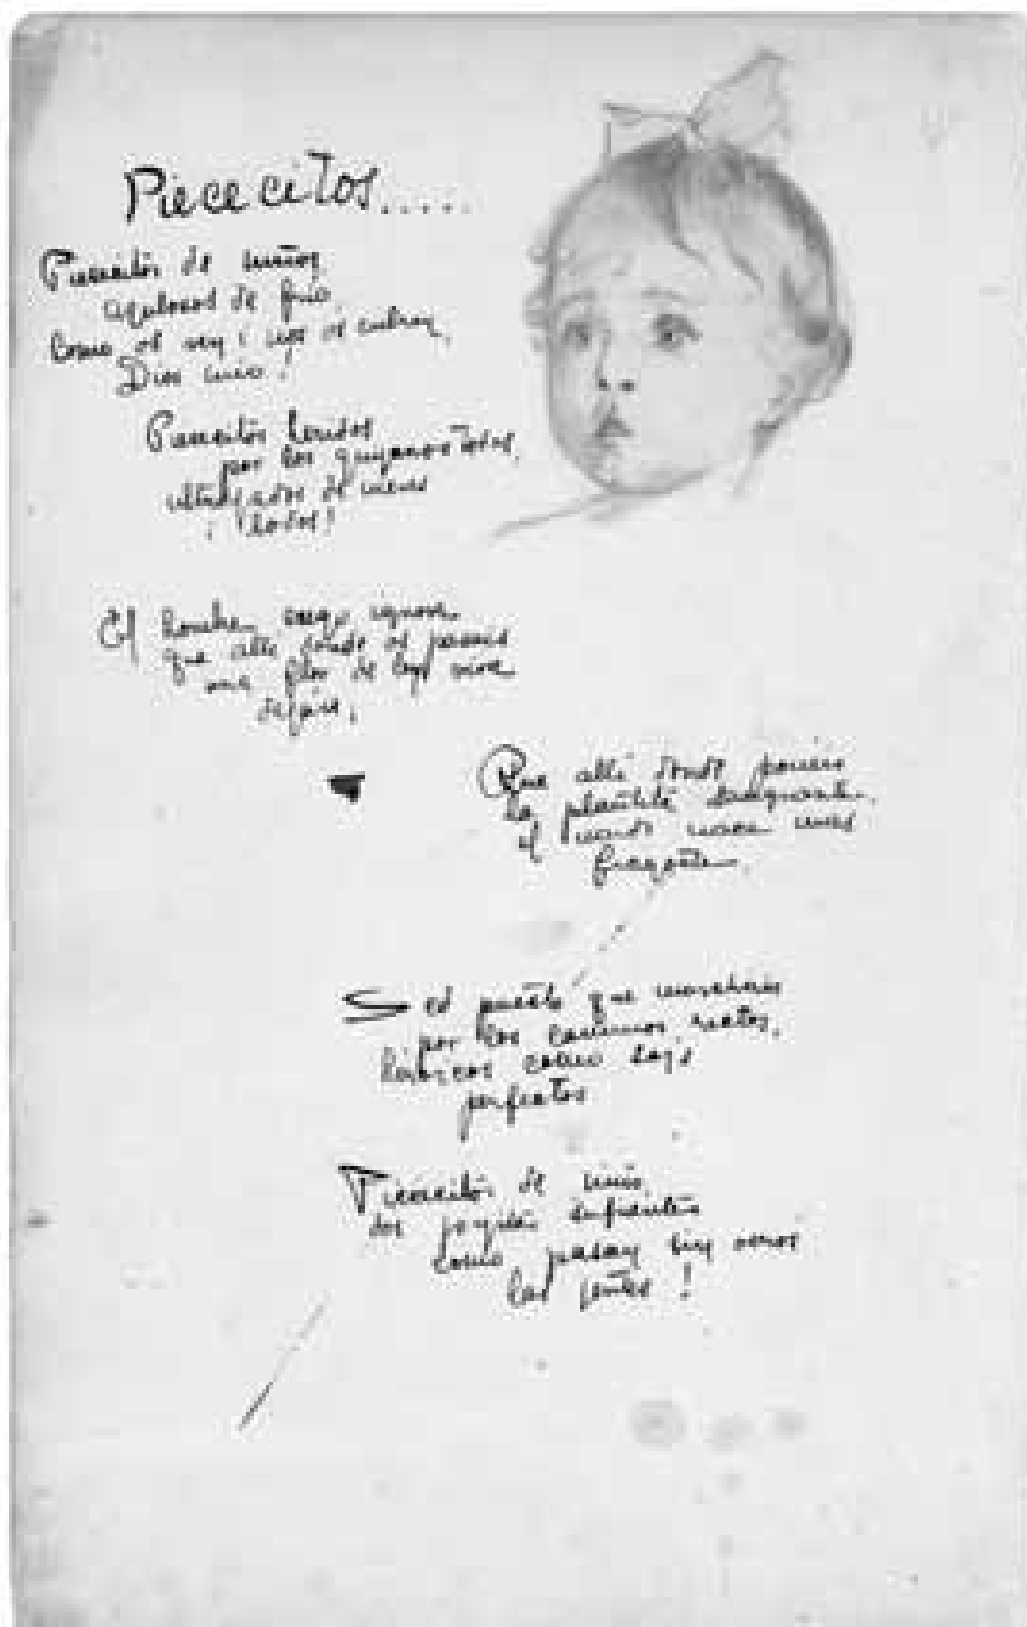 Piececitos.....
Piececitos de niños
azulosos de frio
Como os ven i nos os cubren,
Dios mio!
Piececitos heridos
por los guijarros todos,
ultrajados de nieves
i lodos!
El hombre ciego ignora
que alli donde os poneis
una flor de luz viva
dejais.
Que alli donde poneis
la plantita sangrante,
el nardo nace mas
fragante.
Sed puesto que marchais
por los caminos rectos,
heroicos como sois
perfectos
Piececitos de niño
dos joyitas sufrientes
como pasan sin veros
las gentes!